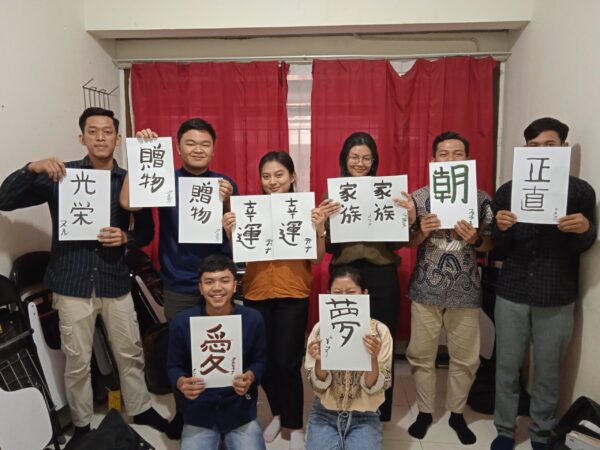 光栄
ヌル
贈物
贈物
幸運
幸運
家族
家族
朝
正直
愛
夢